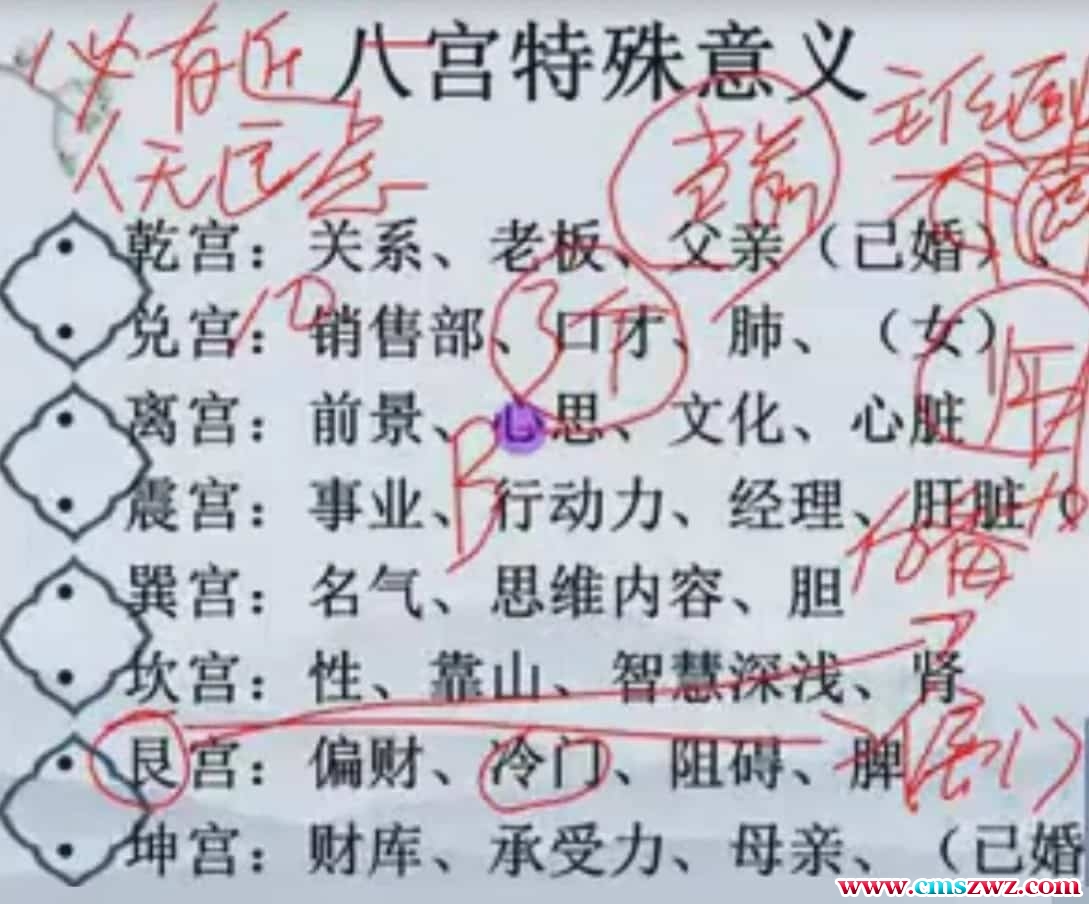 八宫特殊意义
必有近
人无远
当前
乾宫：关系、老板、父亲（已婚）、
兑宫：销售部、口才、肺、（女）
离宫：前景、心思、文化、心脏
震宫：事业、行动力、经理、肝脏（
巽宫：名气、思维内容、胆
坎宫：性、靠山、智慧深浅、肾
艮宫：偏财、冷门、阻碍、脾
坤宫：财库、承受力、母亲、（已婚
www.cmszwz.com